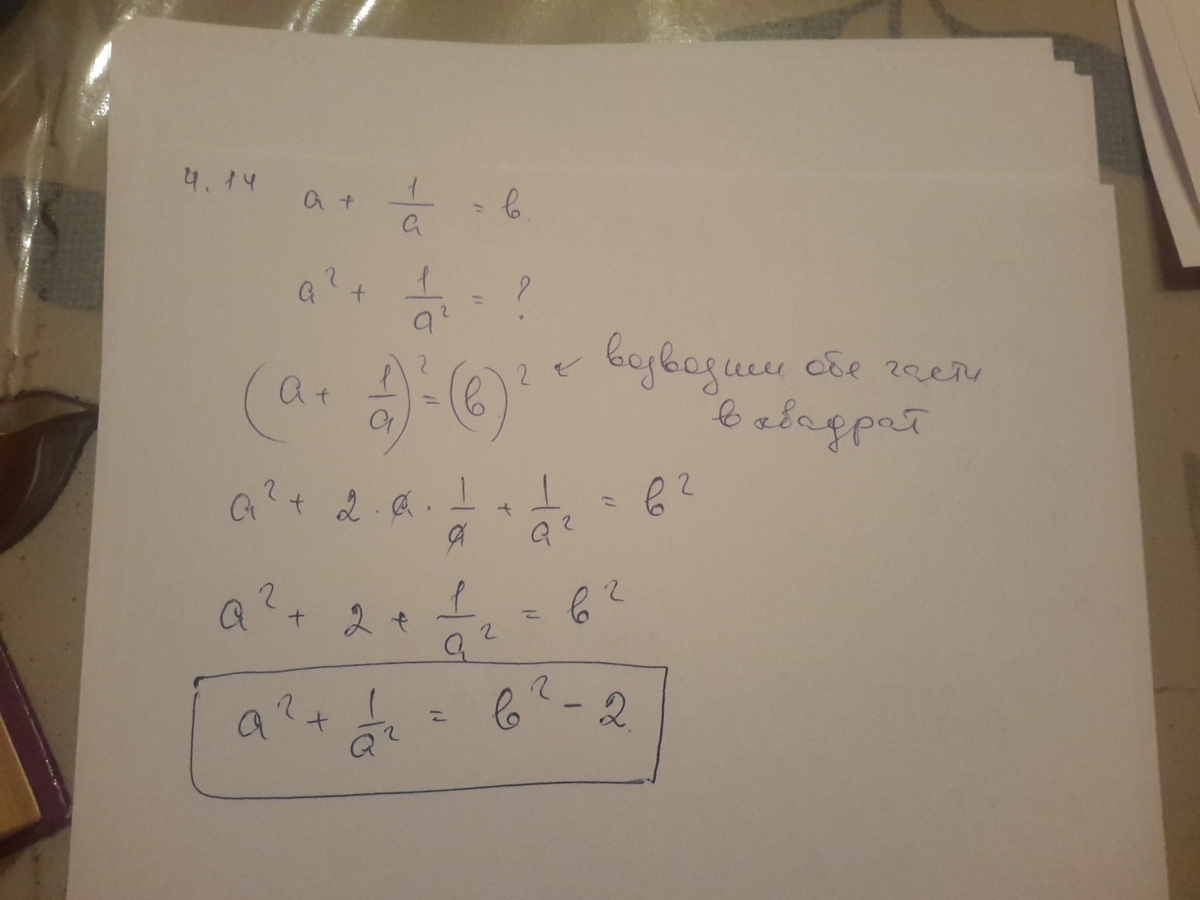 4.14 a + 1/a = в.
a² + 1/a² = ?
(a + 1/a)² = (в)² ← возводим обе части
в квадрат
a² + 2 · a · 1/a + 1/a² = в²
a² + 2 + 1/a² = в²
a² + 1/a² = в² - 2.